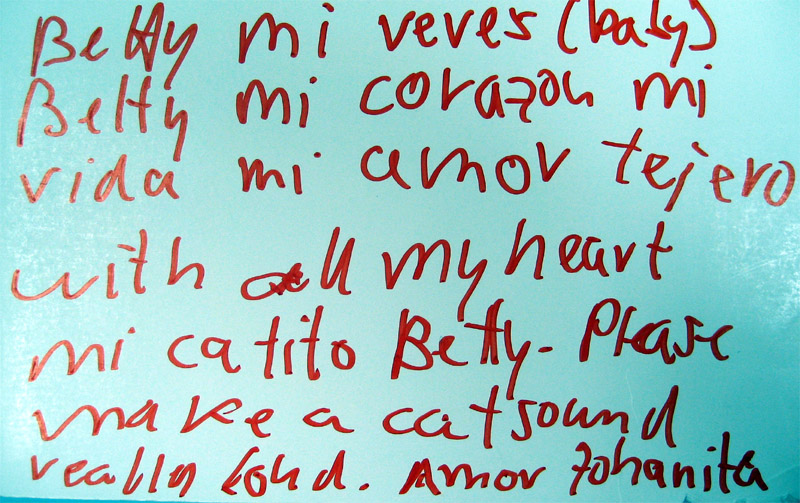 Betty mi veves (baby)
Betty mi corazon mi
vida mi amor tejero
with all my heart
mi catito Betty. Please
make a cat sound
really loud. Amor Zohanita